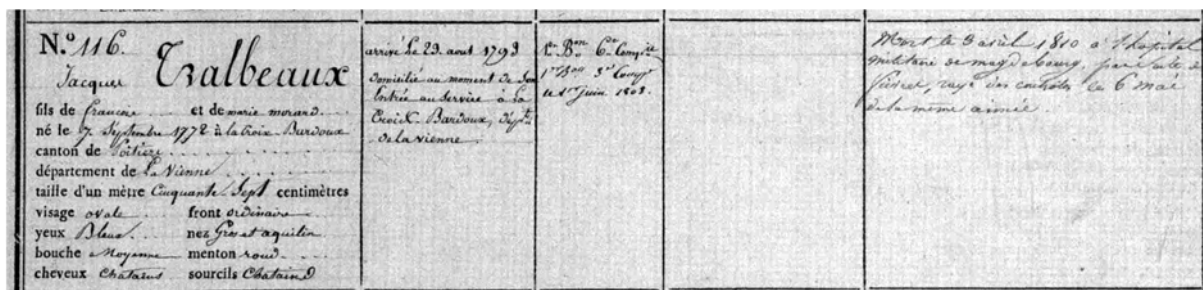 N.º 116. Tralbeaux
Jacques
fils de francoise et de marie morand
né le 7 Septembre 1772 à la Croix Burdoux
canton de Poitiers
département de La Vienne
taille d'un mètre Cinquante Sept centimètres
visage ovale front ordinaire
yeux Bleus nez Gros et aquilin
bouche Moyenne menton rond
cheveux Chatains sourcils Chatains
arrivé Le 23 aout 1793
domicilié au moment de son
Entrée au service à La
Croix Bardoux, dept.
de la Vienne
Bon 6e Compie
1er Bon 3e Comp
le 1er Juin 1808.
Mort le 3 avril 1810 à l'hopital
militaire de magdebourg, par suite de
fievre, rayé des controles le 6 mai
de la même année